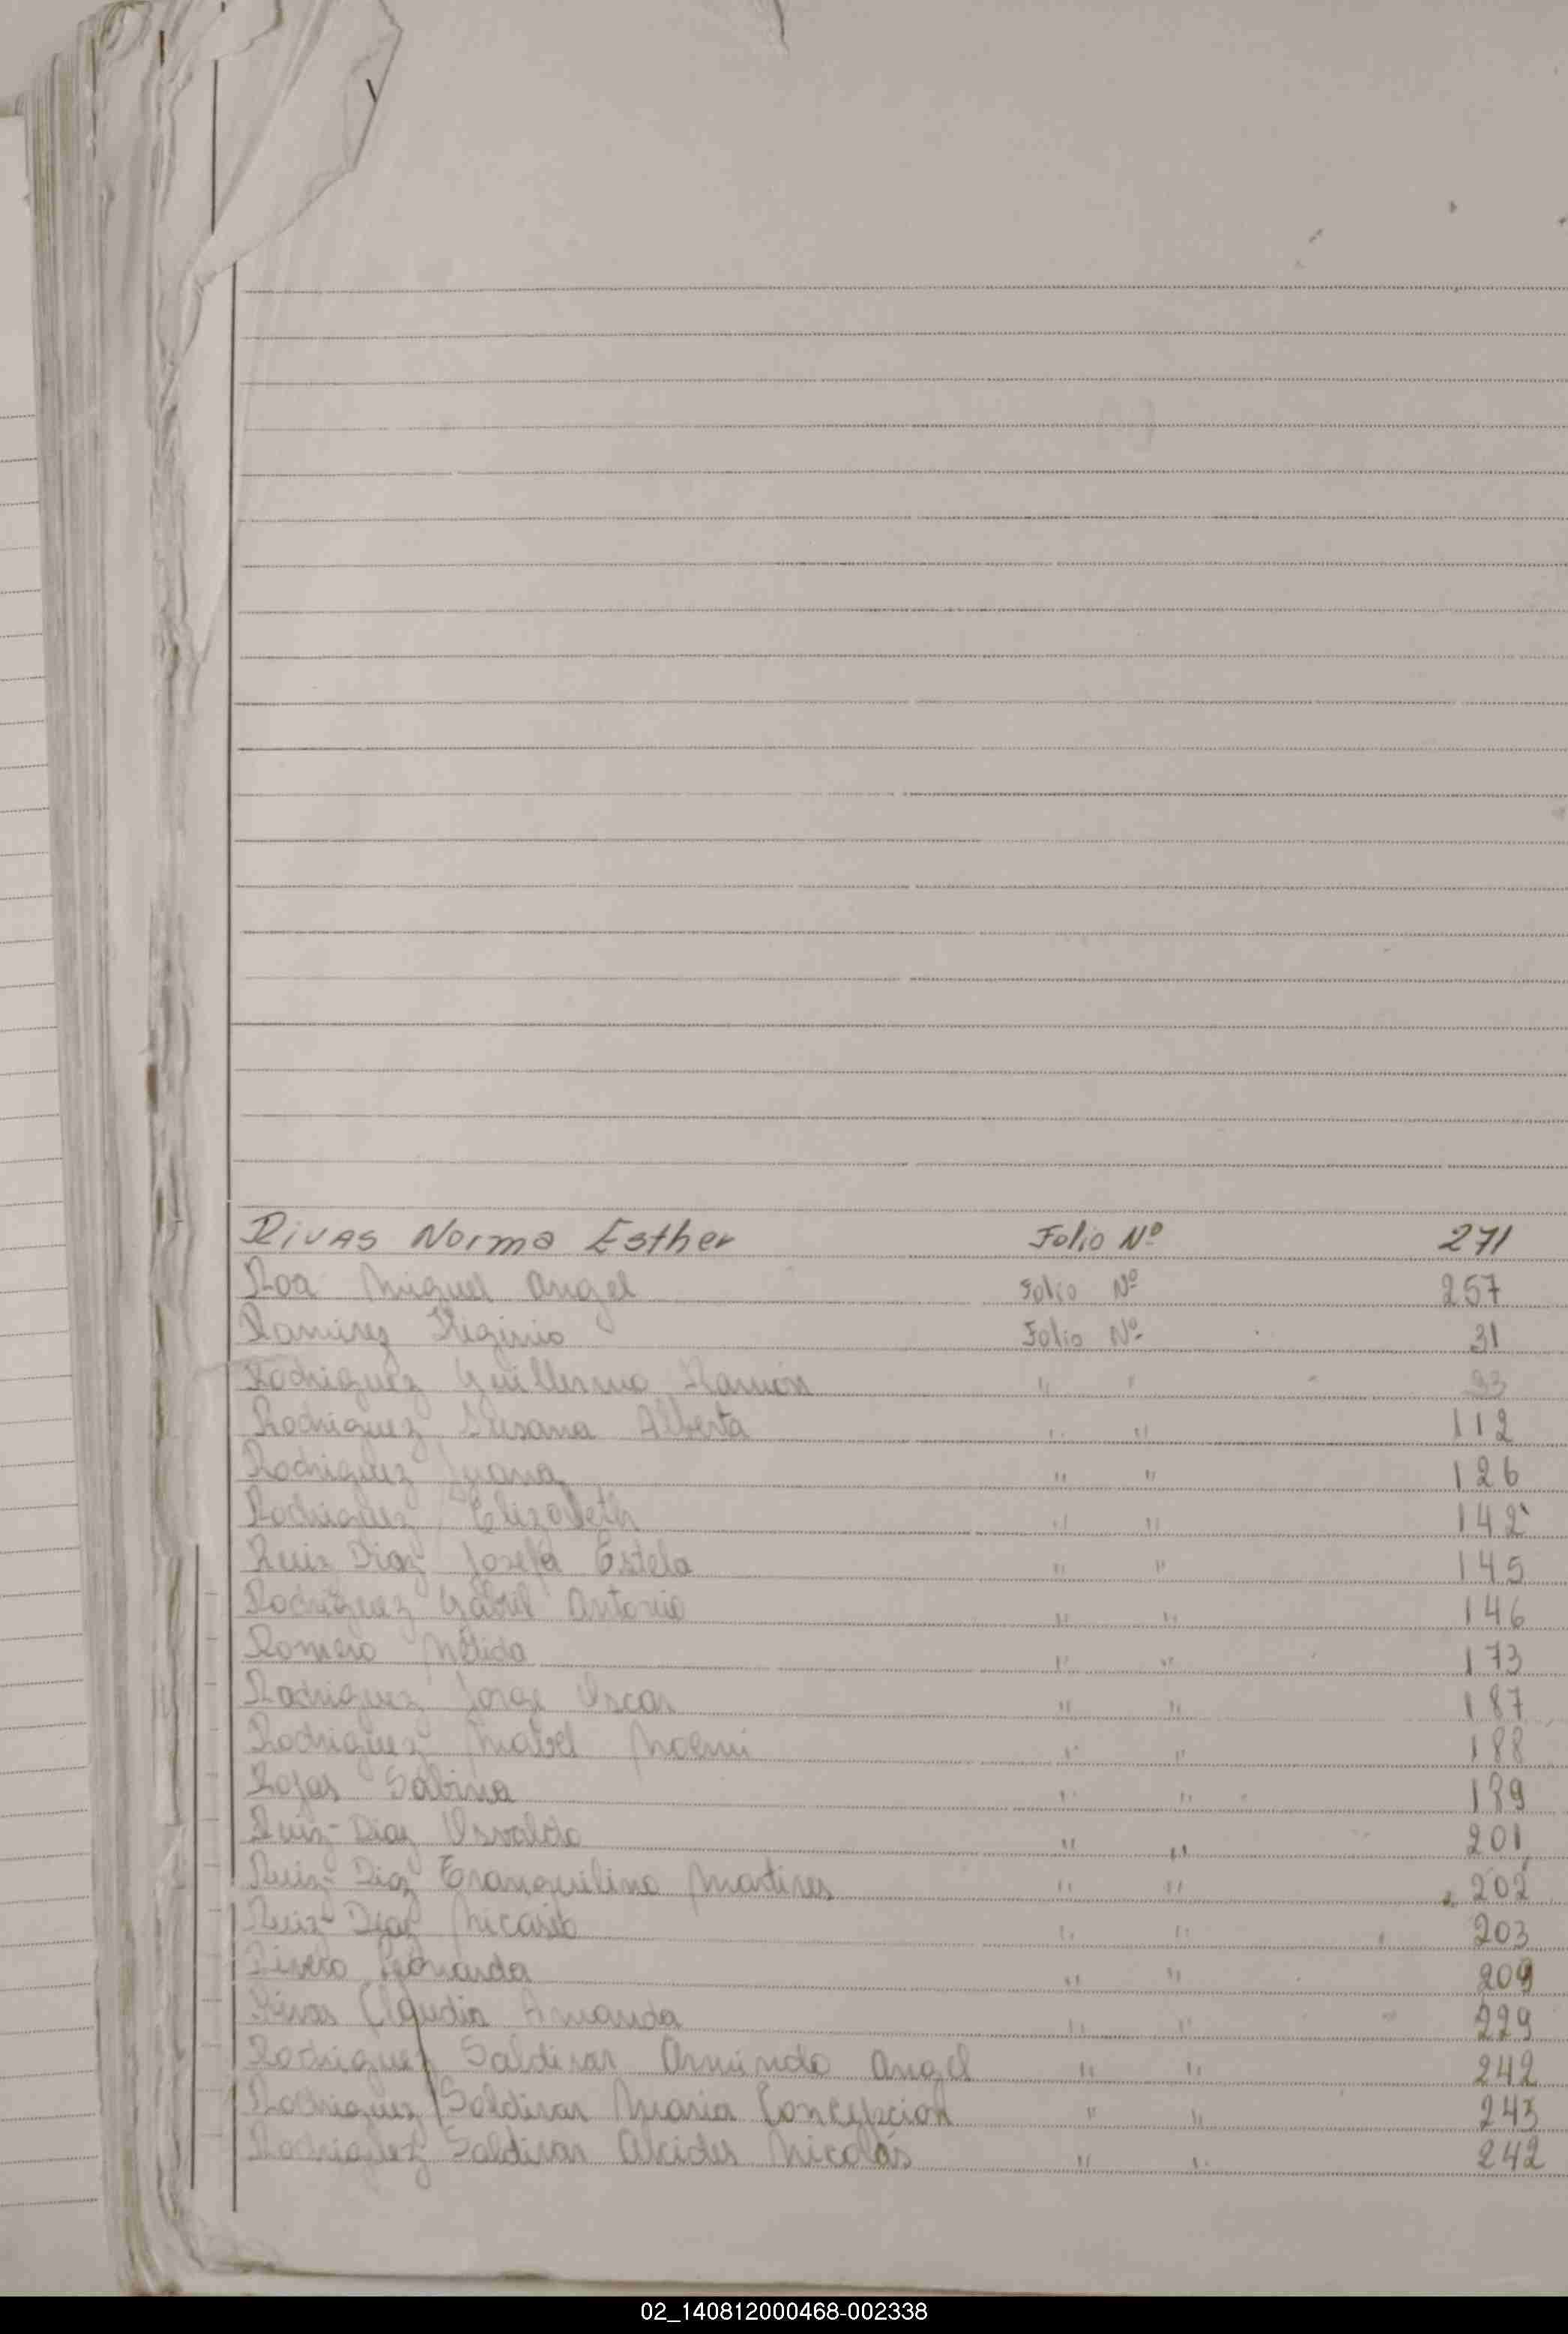 Rivas Norma Esther Folio Nº 271
Roa Miguel Angel Folio Nº 257
Ramirez Higinio Folio Nº 31
Rodriguez Guillermo Ramón " " 93
Rodriguez Susana Alberta " " 112
Rodriguez Juana " " 126
Rodriguez Elizabeth " " 142
Ruiz Diaz Josefa Estela " " 145
Rodriguez Gabriel Antonio " " 146
Romero Nélida " " 173
Rodriguez Jorge Oscar " " 187
Rodriguez Mabel Noemi " " 188
Rojas Sabina " " 189
Ruiz-Diaz Osvaldo " " 201
Ruiz-Diaz Tranquilino Martires " " 202
Ruiz-Diaz Nicasio " " 203
Rivero Leonarda " " 209
Rivas Claudia Amanda " " 229
Rodriguez Saldivar Armindo Angel " " 242
Rodriguez Saldivar Maria Concepcion " " 243
Rodriguez Saldivar Alcides Nicolás " " 242
02_140812000468-002338